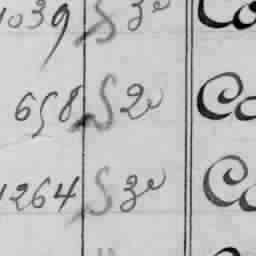 1039 S 3e Co
658 S 2e Co
1264 S 3e Co